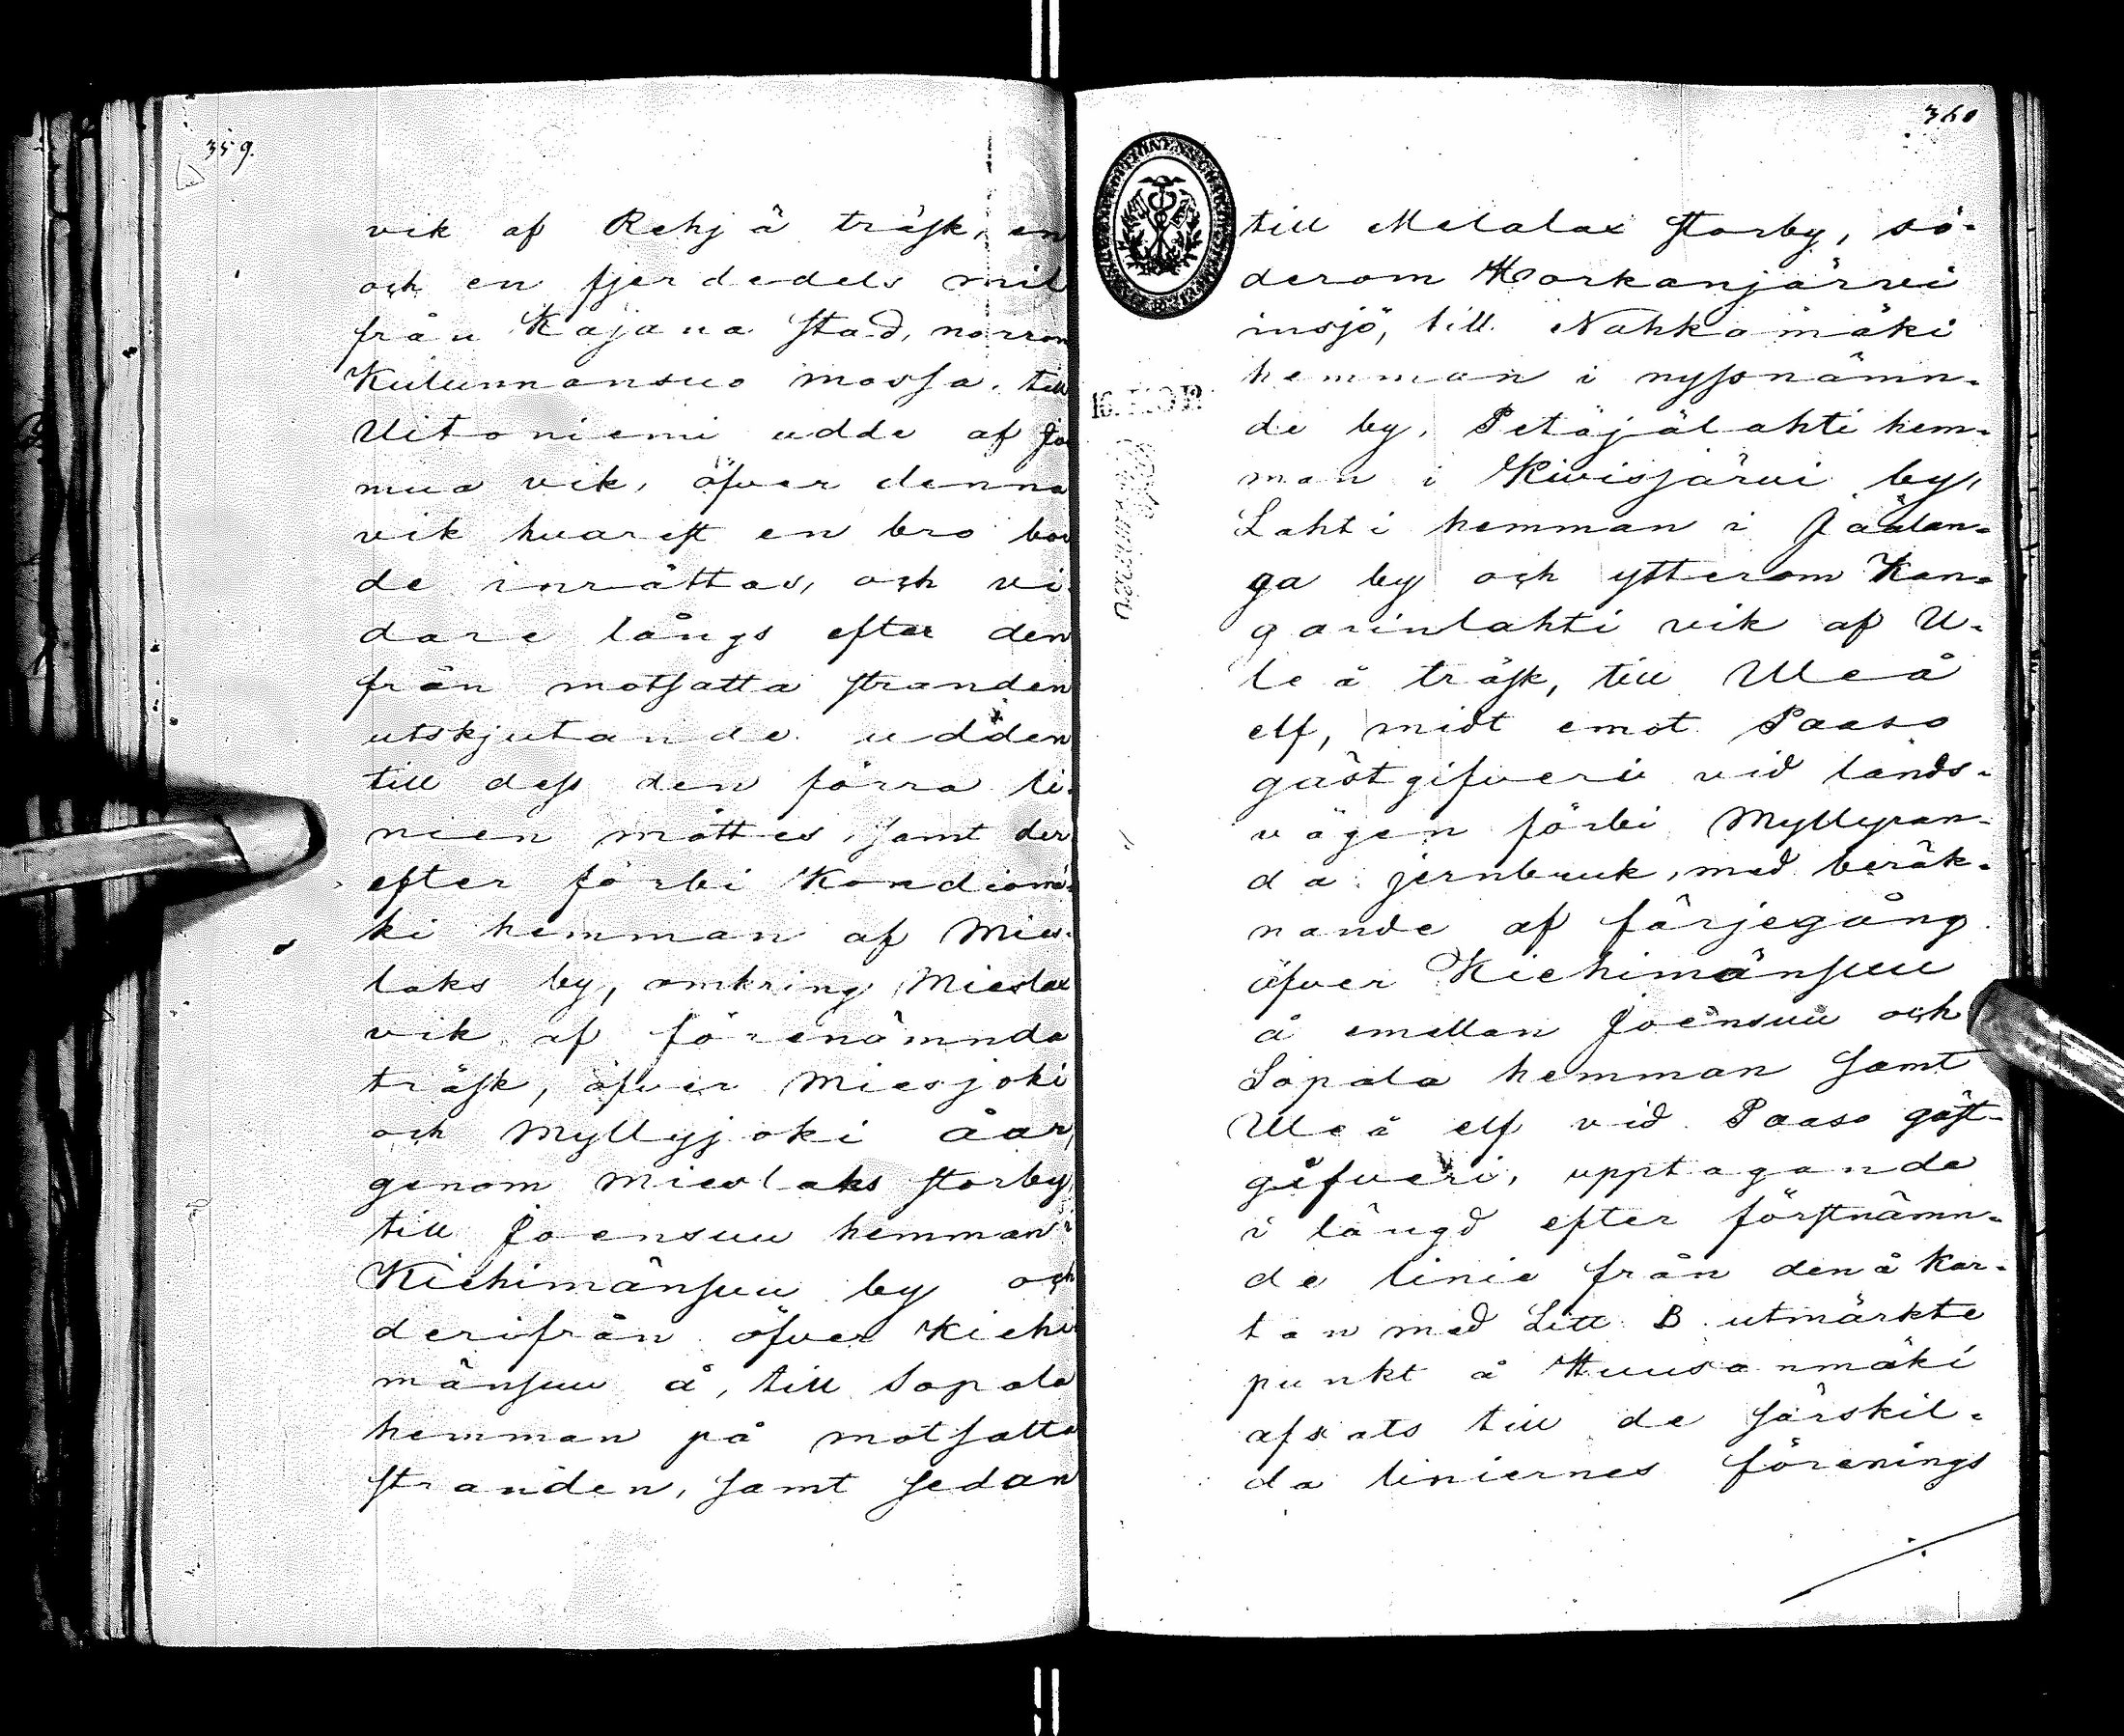 359.
vik af Rehjä träsk, en
och en fjerdedels mil
från Kajana stad, norrom
Kulunnansuo mossa, till
Uitoniemi udde af Jo
mua vik, öfver denna
vik hvarest en bro bor
de inrättas, och vi
dare långs efter den
från motsatta stranden
utskjutande udden
till dess den förra li-
nien möttes, samt der
efter förbi Kondiomä-
ki hemman af Mies-
laks by, omkring Mieslax
vik af förenämnda
träsk, öfver Miesjoki
och Myllyjoki åar,
genom Mieslaks storby
till Joensuu hemman i
Kiehimänsuu by och
derifrån öfver Kiehi
mänsuu å, till Sopala
hemman på motsatta
stranden, samt sedan
360
till Melalax storby, sö-
derom Horkanjärvi
insjö, till Nahkamäki
hemman i nyssnämn-
de by, Petäjälahti hem-
man i Kivisjärvi by,
Lahti hemman i Jaalan-
ga by och ytterom Kan-
garinlahti vik af U-
leå träsk, till Uleå
elf, midt emot Paaso
gästgifveri vid lands-
vägen förbi Myllyran-
da jernbruk, med beräk-
nande af färjegång
öfver Kiehimänsuu
å emellan Joensuu och
Sopala hemman samt
Uleå elf vid Paaso gäst-
gifveri, upptagande
i längd efter förstnämn-
de linie från den å kar-
tan med Litt B utmärkte
punkt å Huusanmäki
afsats till de särskil-
da liniernes förenings